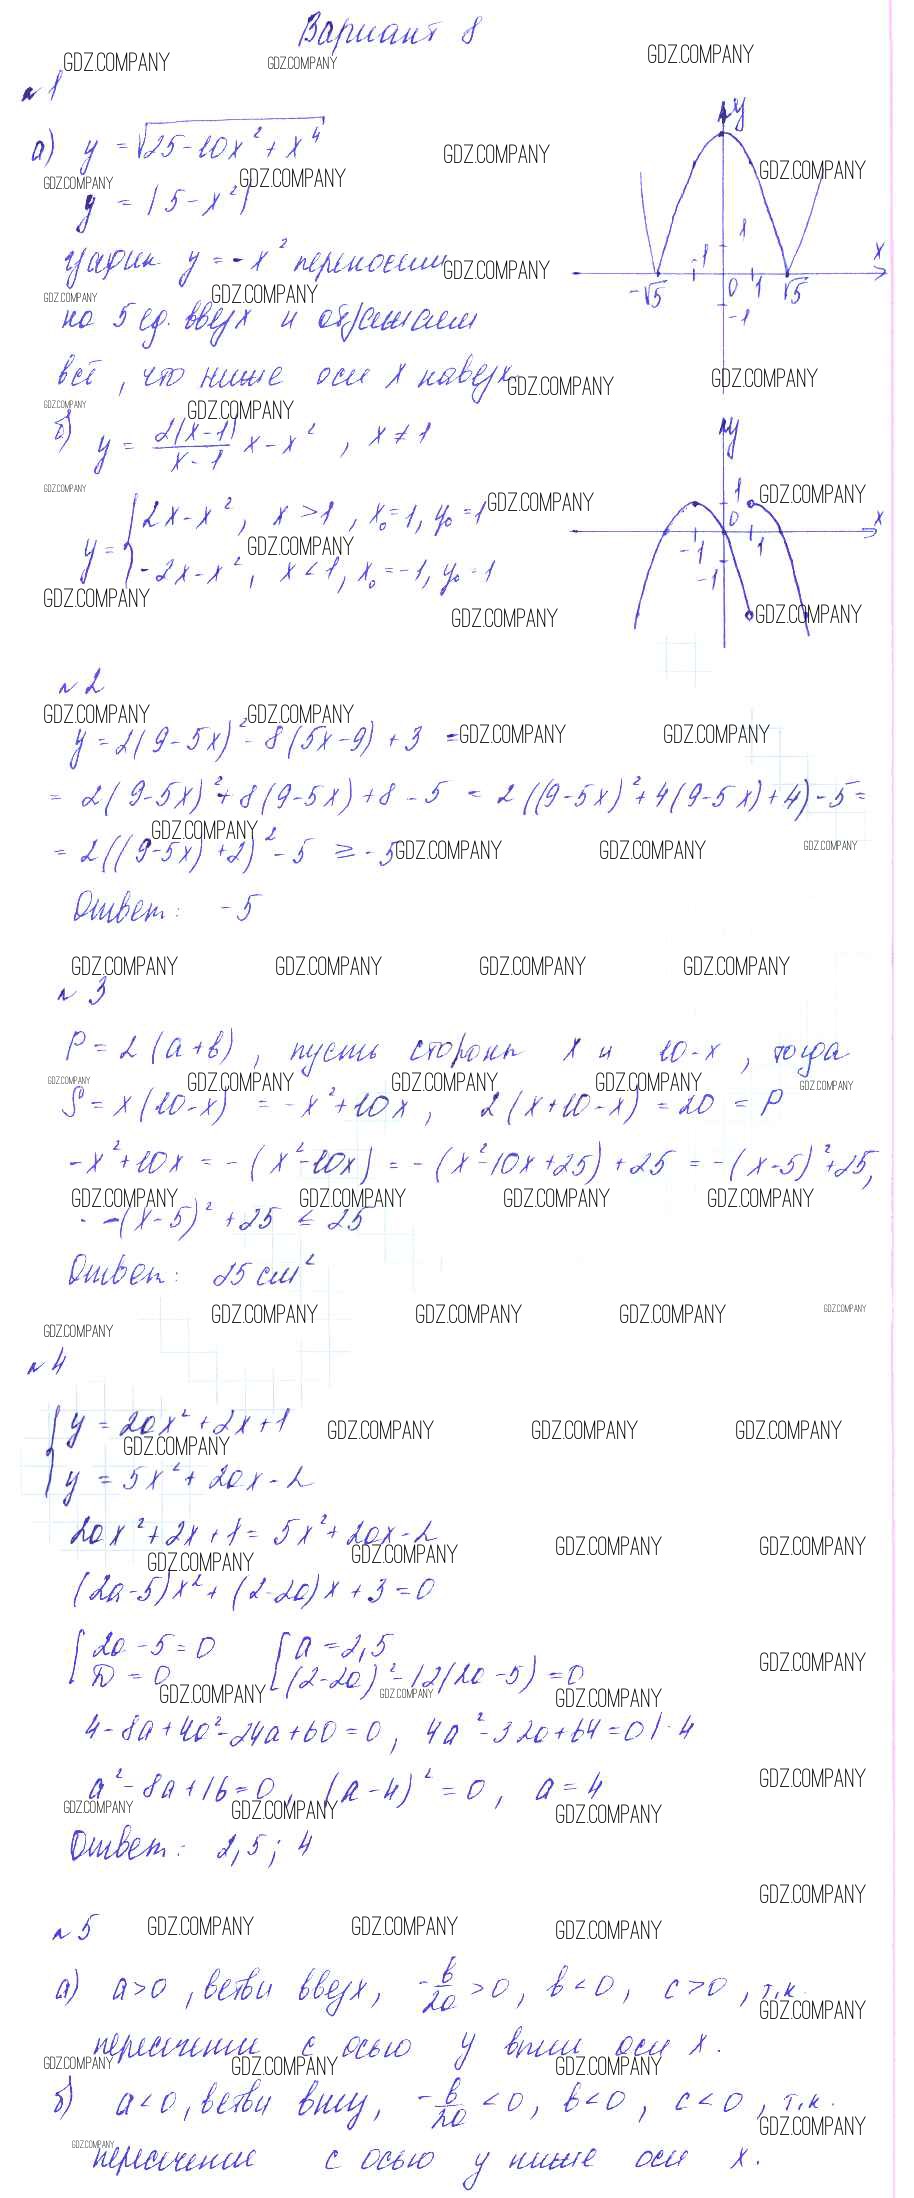 Вариант 8
№1
а) y = √(25-10x²+x⁴)
y = |5-x²|
график y = -x² переносим
на 5 ед. вверх и отражаем
всё, что ниже оси x наверх.
y
x
1
-1
-√5
0
1
√5
-1
б) y = 2|x-1|/(x-1) x - x², x ≠ 1
y = { 2x-x², x > 1, x₀ = 1, y₀ = 1
-2x-x², x < 1, x₀ = -1, y₀ = 1
y
1
0
x
-1
1
-1
№2
y = 2(9-5x)² - 8(5x-9) + 3 =
= 2(9-5x)² + 8(9-5x) + 8 - 5 = 2((9-5x)² + 4(9-5x) + 4) - 5 =
= 2((9-5x)+2)² - 5 ≥ -5
Ответ: -5
№3
P = 2(a+b), пусть стороны x и 10-x, тогда
S = x(10-x) = -x²+10x, 2(x+10-x) = 20 = P
-x²+10x = -(x²-10x) = -(x²-10x+25)+25 = -(x-5)²+25,
-(x-5)² + 25 ≤ 25
Ответ: 25 см²
№4
{ y = 2ax² + 2x + 1
y = 5x² + 2ax - 2
2ax² + 2x + 1 = 5x² + 2ax - 2
(2a-5)x² + (2-2a)x + 3 = 0
[ 2a - 5 = 0 [ a = 2,5
D = 0 (2-2a)² - 12(2a-5) = 0
4 - 8a + 4a² - 24a + 60 = 0, 4a² - 32a + 64 = 0 | : 4
a² - 8a + 16 = 0, (a-4)² = 0, a = 4
Ответ: 2,5; 4
№5
а) a > 0, ветви вверх, -b/2a > 0, b < 0, c > 0, т.к.
пересечение с осью y выше оси x.
б) a < 0, ветви вниз, -b/2a < 0, b < 0, c < 0, т.к.
пересечение с осью y ниже оси x.
GDZ.COMPANY